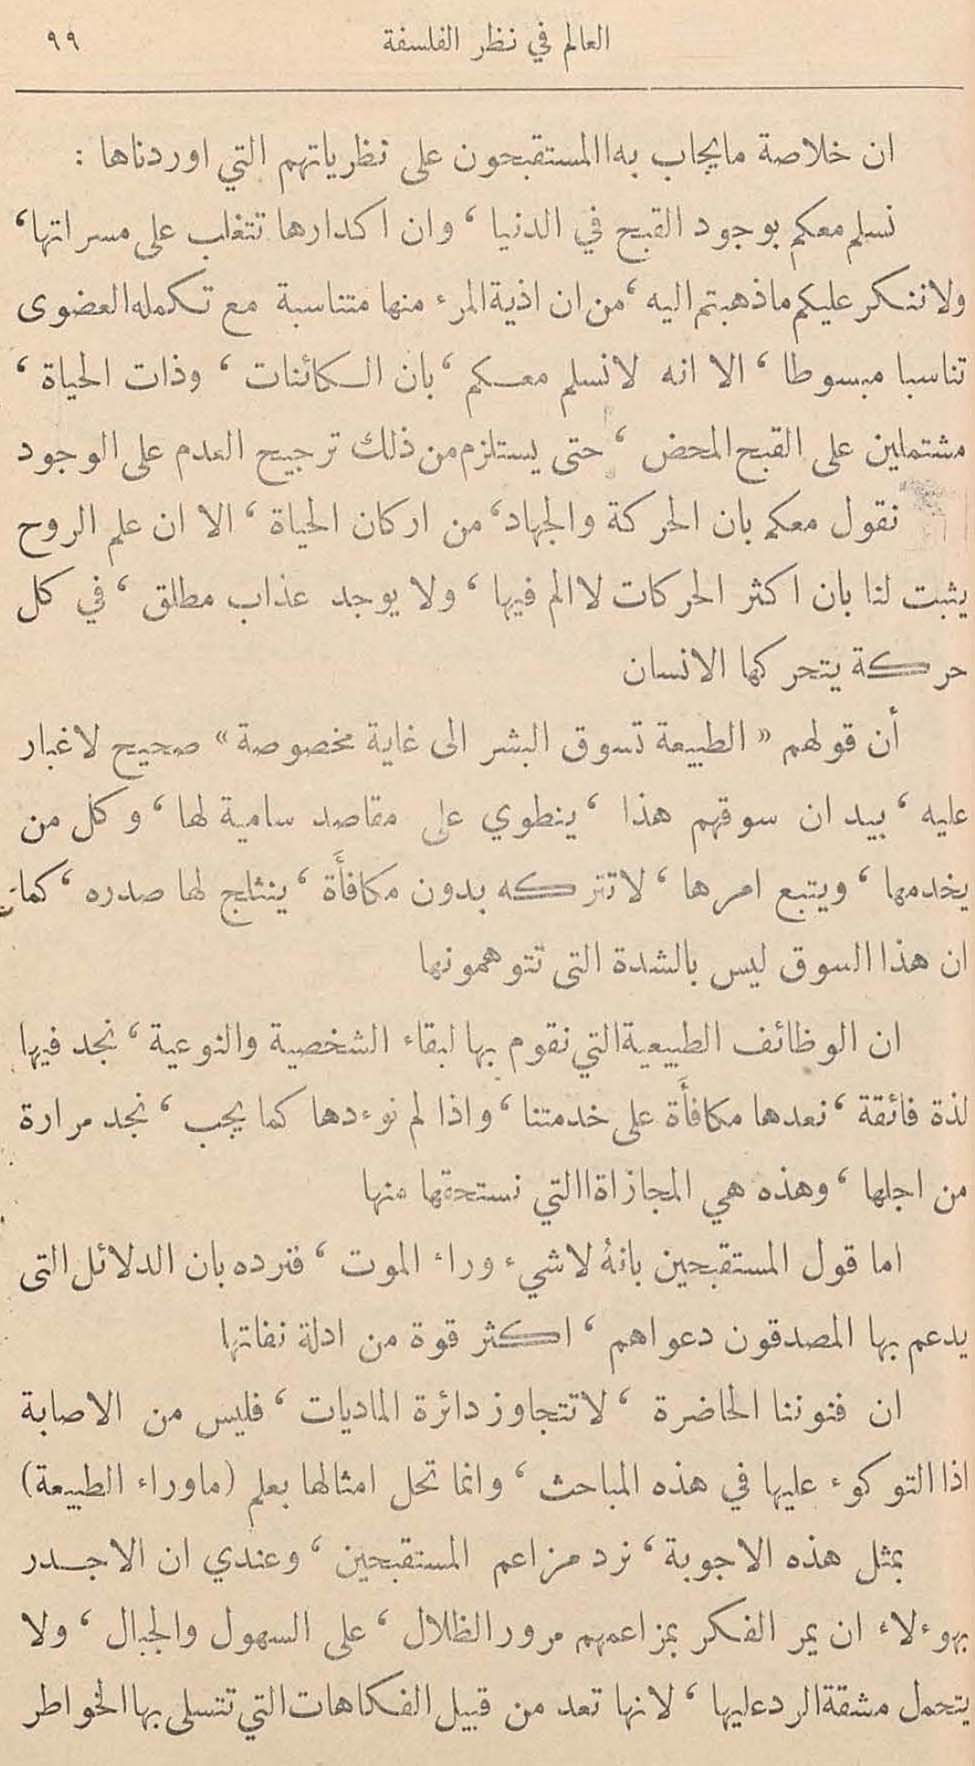 العالم في نظر الفلسفة ٩٩
ان خلاصة مايجاب به المستقبحون على نظرياتهم التي اوردناها :
نسلم معكم بوجود القبح في الدنيا ، وان اكدارها تتغلب على مسراتها ،
ولاننكر عليكم ماذهبتم اليه ، من ان اذية المرء منها متناسبة مع تكمله العضوى
تناسبا مبسوطا ، الا انه لانسلم معكم ، بان الكائنات ، وذات الحياة ،
مشتملين على القبح المحض ، حتى يستلزم من ذلك ترجيح العدم على الوجود
نقول معكم بان الحركة والجهاد ، من اركان الحياة ، الا ان علم الروح
يثبت لنا بان اكثر الحركات لاالم فيها ، ولا يوجد عذاب مطلق ، في كل
حركة يتحركها الانسان
أن قولهم « الطبيعة تسوق البشر الى غاية مخصوصة » صحيح لاغبار
عليه ، بيد ان سوقهم هذا ، ينطوي على مقاصد سامية لها ، وكل من
يخدمها ، ويتبع امرها ، لاتتركه بدون مكافأَة ، ينثلج لها صدره ، كما
ان هذا السوق ليس بالشدة التى تتوهمونها
ان الوظائف الطبيعية التي نقوم بها لبقاء الشخصية والنوعية ، نجد فيها
لذة فائقة ، نعدها مكافأَة على خدمتنا ، واذا لم نوءدها كما يجب ، نجد مرارة
من اجلها ، وهذه هي المجازاة التي نستحقها منها
اما قول المستقبحين بانهُ لاشيء وراء الموت ، فنرده بان الدلائل التى
يدعم بها المصدقون دعواهم ، اكثر قوة من ادلة نفاتها
ان فنوننا الحاضرة ، لاتتجاوز دائرة الماديات ، فليس من الاصابة
اذا التوكوء عليها في هذه المباحث ، وانما تحل امثالها بعلم (ماوراء الطبيعة)
بمثل هذه الاجوبة ، نرد مزاعم المستقبحين ، وعندي ان الاجدر
بهوءلاء ان يمر الفكر بمزاعمهم مرور الظلال ، على السهول والجبال ، ولا
يتحمل مشقة الرد عليها ، لانها تعد من قبيل الفكاهات التي تتسلى بها الخواطر